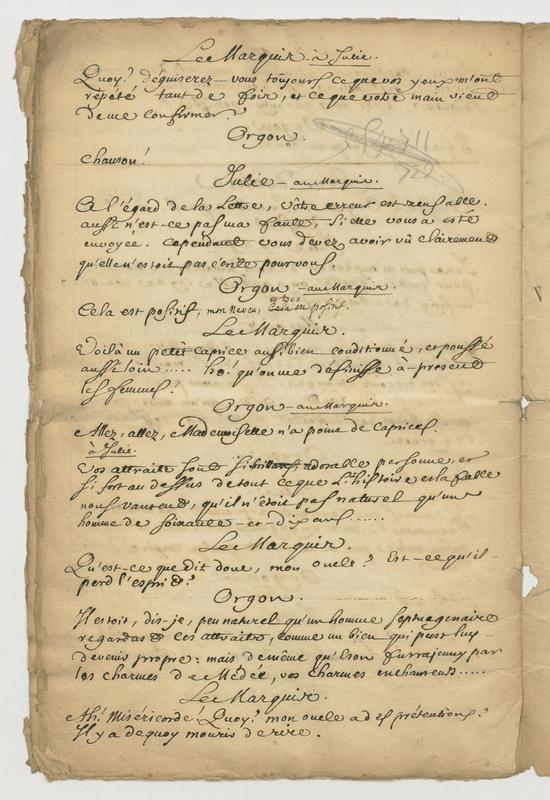 Le Marquis à Julie.
Quoy? déguiserez-vous toujours ce que vos yeux m'ont
répété tant de fois, et ce que votre main vient
de me confirmer?
Orgon.
Chanson!
Julie - au Marquis.
A l'égard de la Lettre, vôtre erreur est
aussi n'est-ce pas ma faute, Si elle vous a esté
envoyée. Cependant vous devez avoir vû clairement
qu'elle n'estoit pas écrite pour vous
Orgon - au Marquis.
Cela est positif, mon neveu, Cela est positif.
Le Marquis.
Voilà un petit caprice aussi bien conditionné, et poussé
aussi loin..... ho! qu'on me définisse à-présent
les femmes!
Orgon - au Marquis.
Allez, allez, Mademoiselle n'a point de caprices.
à Julie.
Vos attraits sont si brillans, adorable personne, et
si fort au dessus de tout ce que L'histoire et la fable
nous vantent, qu'il n'étoit pas naturel qu'un
homme de soixante-et-dix ans......
Le Marquis.
Qu'est-ce que dit donc, mon oncle? Est-ce qu'il
perd l'esprit?
Orgon.
Il estoit, dis-je, peu naturel qu'un homme septuagenaire
regardat ces attraits, comme un bien qui pust luy
devenir propre: mais de même qu'Eson fut rajeuny par
les charmes de Médée, vos charmes enchanteurs.....
Le Marquis.
Ah! Miséricorde! Quoy? mon oncle a des prétentions?
Il y a de quoy mourir de rire.